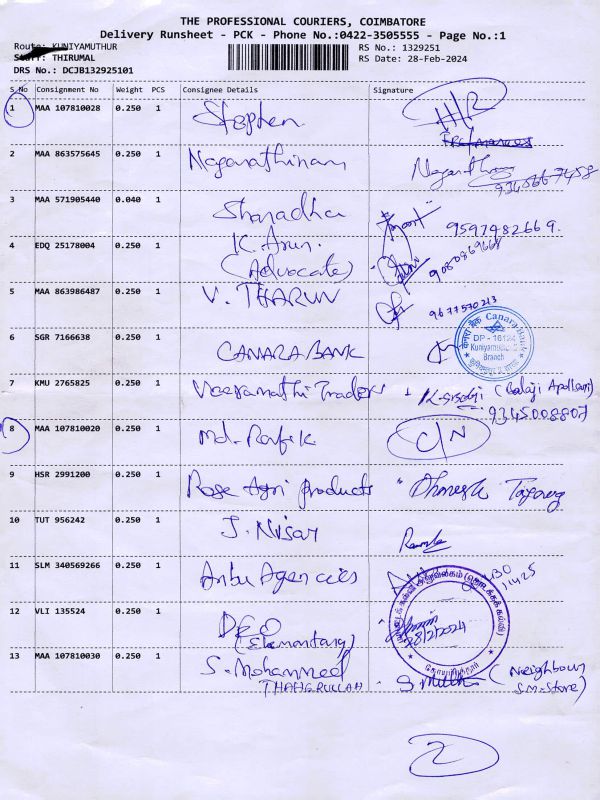 THE PROFESSIONAL COURIERS, COIMBATORE
Delivery Runsheet - PCK - Phone No.:0422-3505555 - Page No.:1
Route: KUNIYAMUTHUR
RS No.: 1329251
Staff: THIRUMAL
RS Date: 28-Feb-2024
DRS No.: DCJB132925101
S.No Consignment No Weight PCS Consignee Details Signature
1 MAA 107810028 0.250 1 Stephen
2 MAA 863575645 0.250 1 Naganathinam
9345667458
3 MAA 571905440 0.040 1 Sharadha 9597482669.
4 EDQ 25178004 0.250 1 K. Arun.
(Advocate) 9080869668
5 MAA 863986487 0.250 1 V. THARUN 9677570213
6 SGR 7166638 0.250 1 CANARA BANK
Canara Bank
DP - 16124
Branch
7 KMU 2765825 0.250 1 Traders (Balaji
9345008807
8 MAA 107810020 0.250 1 Md. Rafik C/N
9 HSR 2991200 0.250 1 Rose Agri products
10 TUT 956242 0.250 1 J. Nisar
11 SLM 340569266 0.250 1 Anbu Agencies
12 VLI 135524 0.250 1 DEO
(Elementary) 28/2/2024
13 MAA 107810030 0.250 1 S. Mohammed (Neighbour
S.M-Store)
2